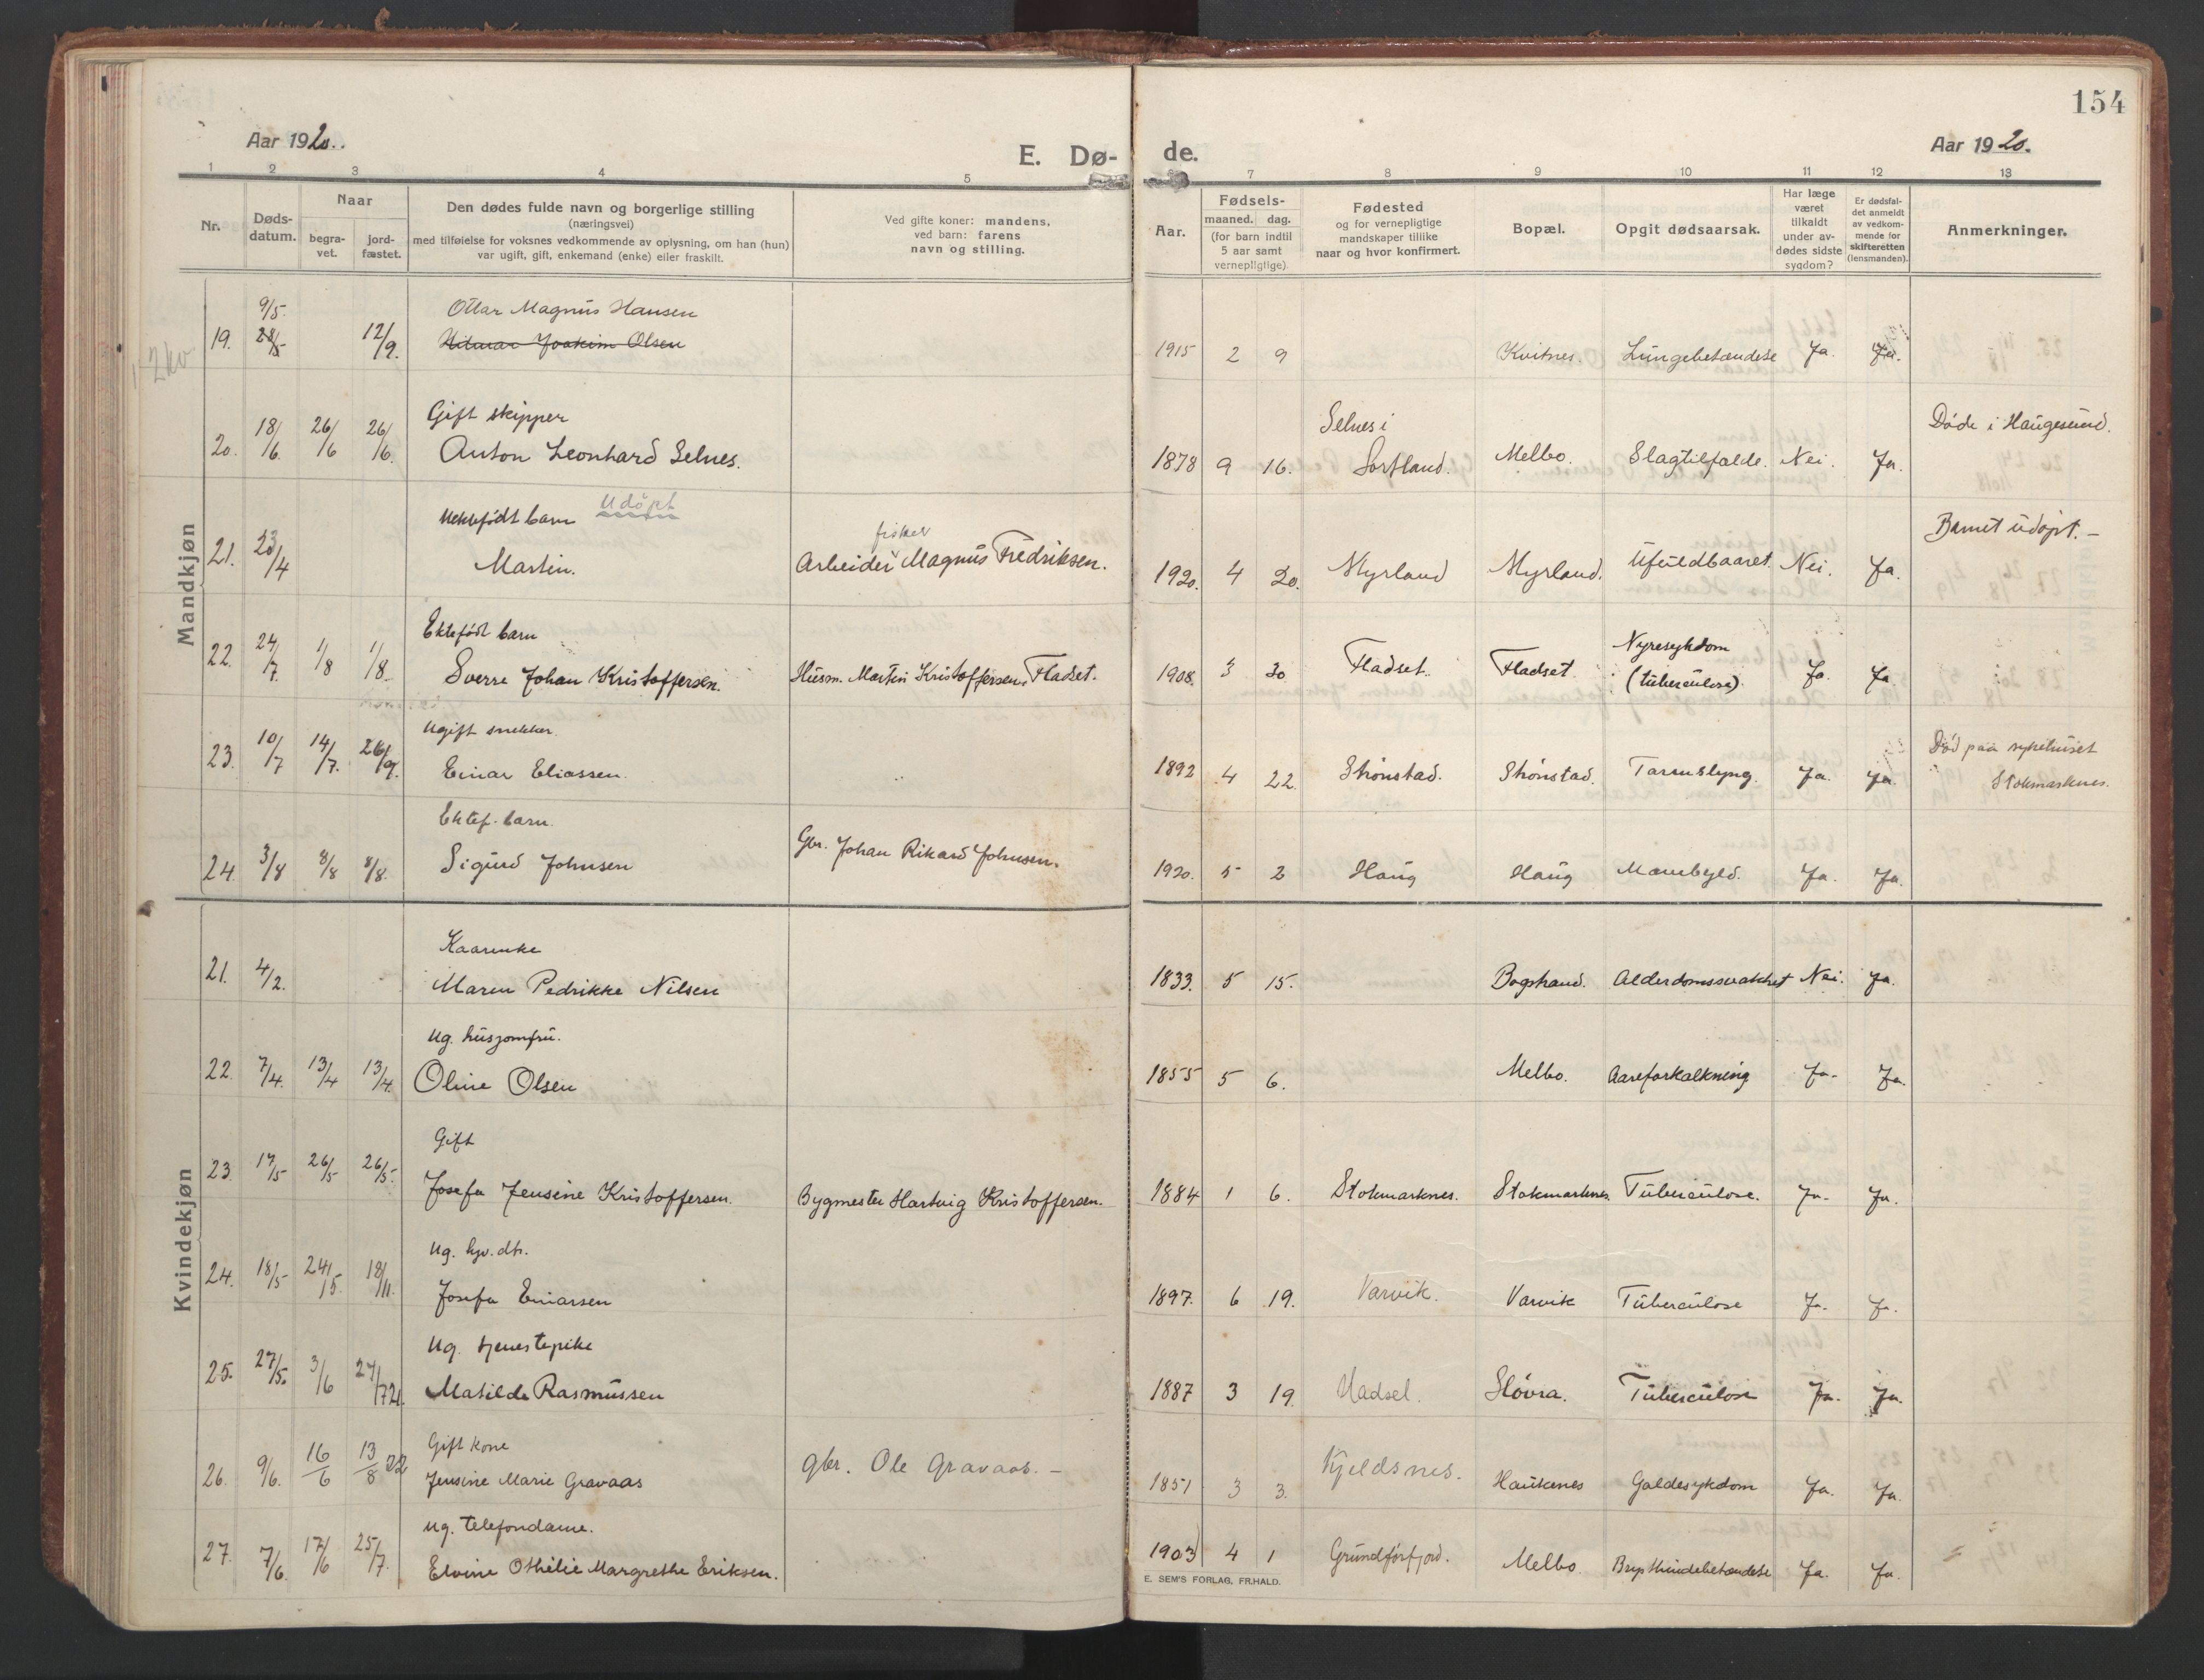 154
Aar 1920.
E. Dø-
de.
Aar 1920.
1 2 3 4 5 7 8 9 10 11 12 13
Nr.
Døds-
datum.
Naar
begra-
vet.
jord-
fæstet.
Den dødes fulde navn og borgerlige stilling
(næringsvei)
med tilføielse for voksnes vedkommende av oplysning, om han (hun)
var ugift, gift, enkemand (enke) eller fraskilt.
Ved gifte koner: mandens,
ved barn: farens
navn og stilling.
Aar.
Fødsels-
maaned. dag.
(for barn indtil
5 aar samt
vernepligtige)
Fødested
og for vernepligtige
mandskaper tillike
naar og hvor konfirmert.
Bopæl.
Opgit dødsaarsak.
Har læge
været
tilkaldt
under av-
dødes sidste
sygdom?
Er dødsfal-
det anmeldt
av vedkom-
mende for
skifteretten
(lensmanden).
Anmerkninger.
Mandkjøn
9/5. Ottar Magnus Hansen
19. 28/5 12/9. Hilmar Joakim Olsen 1915 2 9 Kvitnes Lungebetændelse Ja. Ja.
Gift skipper Selnes i Døde i Haugesund.
20. 18/6. 26/6 26/6. Anton Leonhard Selnes. 1878 9 16. Sortland. Melbo. Slagtilfælde. Nei. Ja.
Uektefødt barn Udöpt fisker Barnet udöpt. –
21. 23/4 Martin. Arbeider Magnus Fredriksen. 1920. 4 20. Myrland Myrland. Ufuldbaaret Nei. Ja.
Ektefödt barn Nyresykdom
22. 24/7. 1/8 1/8. Sverre Johan Kristoffersen. Husm. Martin Kristoffersen, Fladset. 1908. 3 30 Fladset. Fladset. (tuberculose). Ja. Ja.
Ugift snekker. Död paa sykehuset
23. 10/7 14/7. 26/9. Einar Eliassen. 1892 4 22. Skönstad. Skönstad. Tarmslyng. Ja. Ja. Stokmarknes.
Ektef. barn.
24. 3/8 8/8 8/8. Sigurd Johnsen Gbr. Johan Rikard Johnsen. 1920. 5 2 Haug Haug Mavebyld. Ja. Ja.
Kvindekjøn
Kaarenke
21. 4/2. Maren Pedrikke Nilsen 1833. 5 15. Bogstrand. Alderdomssvakhet Nei. Ja.
Ug. husjomfru.
22. 7/4. 13/4 13/4. Oline Olsen 1855 5 6. Melbo. Aareforkalkning Ja. Ja.
Gift
23. 17/5 26/5 26/5. Josefa Jensine Kristoffersen. Bygmester Hartvig Kristoffersen. 1884 1 6. Stokmarknes. Stokmarknes. Tuberculose. Ja. Ja.
Ug. hjv. dtr.
24. 18/5 24/5 18/11. Josefa Einarsen 1897. 6 19. Varvik. Varvik Tuberculose Ja. Ja.
Ug. tjenestepike
25. 27/5. 3/6 27/7 21. Matilde Rasmussen 1887 3 19. Hadsel. Slövra. Tuberculose Ja. Ja.
Gift kone
26. 9/6. 16/6 13/8 22 Jensine Marie Gravaas gbr. Ole Gravaas. – 1851 3 3. Kjeldsnes. Haukenes Galdesykdom Ja. Ja.
Ug. telefondame.
27. 7/6. 17/6 25/7. Elvine Othelie Margrethe Eriksen. 1903 4 1 Grundforfjord. Melbo. Brysthindebetændelse Ja. Ja.
E. SEM'S FORLAG, FR.HALD.